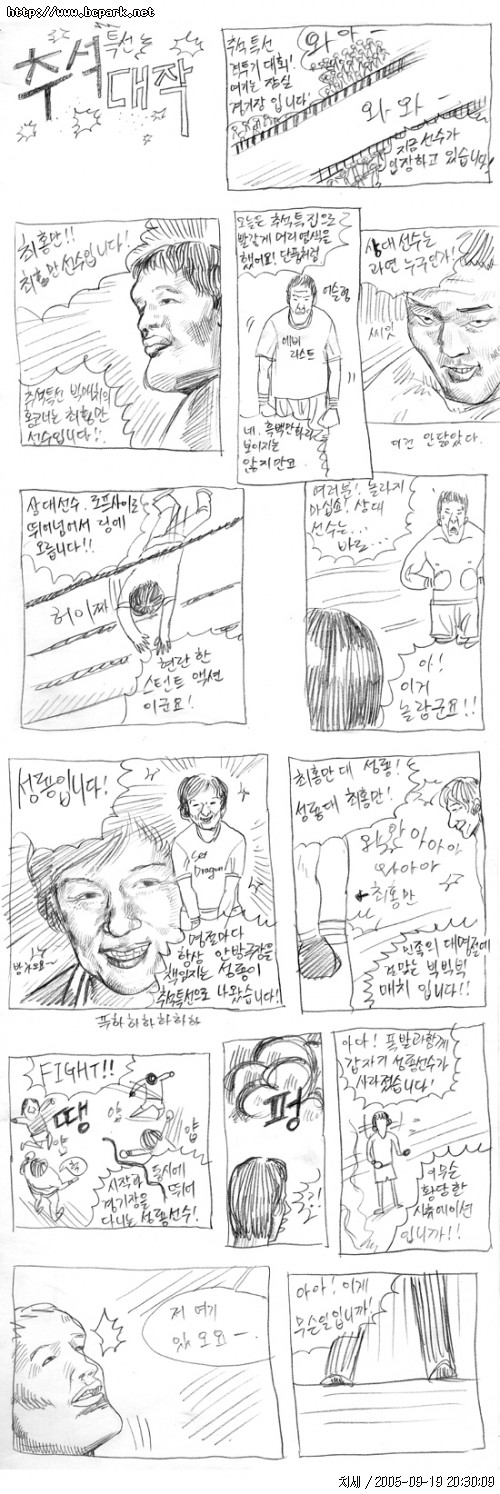 http://www.bcpark.net
추석
특선
대작
추석 특선
격투기 대회!
여기는 잠실
경기장 입니다!
와아-
와 와-
지금 선수가
입장하고 있습니다!
최홍만!!
최홍만 선수입니다!
추석특선 빅매치의
홍코너는 최홍만
선수입니다!
오늘은 추석특집으로
빨갛게 머리염색을
했어요! 단풍처럼
어슬렁
에버
라스트
네. 흑백만화라
보이지는
않지만요
상대선수는
과연 누구인가!
씨익
이건 안닮았다.
상대선수. 로프사이로
뛰어넘어서 링에
오릅니다!!
허이짜
현란한
스턴트 액션
이군요!
여러분! 놀라지
마십쇼! 상대
선수는...
바로...
아!
이게
놀랍군요!!
성룡입니다!
Lee
Dragon
반가워요~
명절마다
항상 안방극장을
책임지는 성룡이
추석특선으로 나왔습니다!
푸하하하하하하
최홍만 대 성룡!
성룡대 최홍만!
와와아아아
와아아
최홍만
민족의 대명절에
걸맞는 빅빅빅
매치 입니다!!
FIGHT!!
땡
얍
얍
얍
시작과
동시에
경기장을
뛰어
다니는 성룡선수!
펑
아아! 폭발과함께
갑자기 성룡선수가
사라졌습니다!
이무슨
황당한
시츄에이션
입니까!!
저 여기
있오요-.
아아! 이게
무슨일입니까!
치세 / 2005-09-19 20:30:09